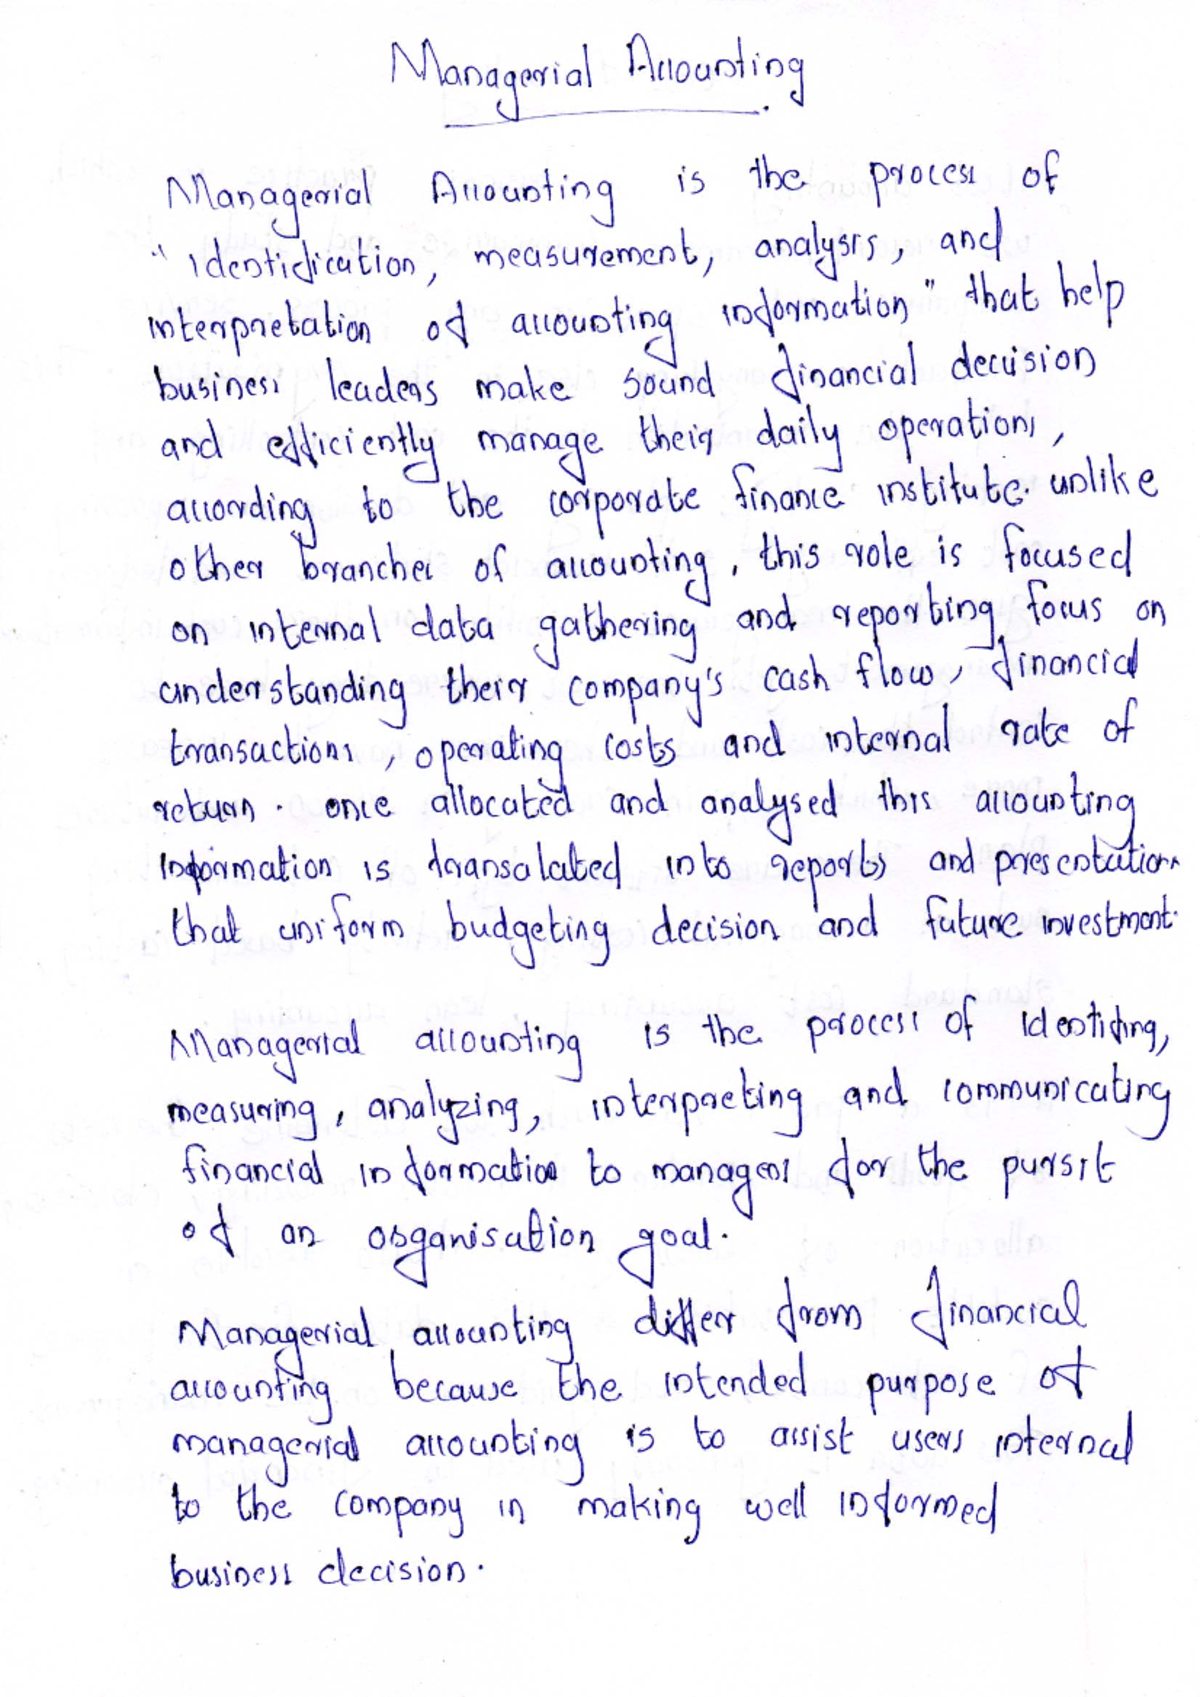 Managerial Accounting
Managerial Accounting is the process of
"identification, measurement, analysis, and
interpretation of accounting information" that help
business leaders make sound financial decision
and efficiently manage their daily operations,
according to the corporate finance institute. unlike
other branches of accounting, this role is focused
on internal data gathering and reporting focus on
understanding their company's cash flow, financial
transactions, operating costs and internal rate of
return. once allocated and analysed this accounting
information is transalated into reports and presentation
that uniform budgeting decision and future investment.
Managerial accounting is the process of identifing,
measuring, analyzing, interpreting and communicating
financial information to managers for the pursit
of an organisation goal.
Managerial accounting differ from financial
accounting because the intended purpose of
managerial accounting is to assist users internal
to the company in making well informed
business decision.